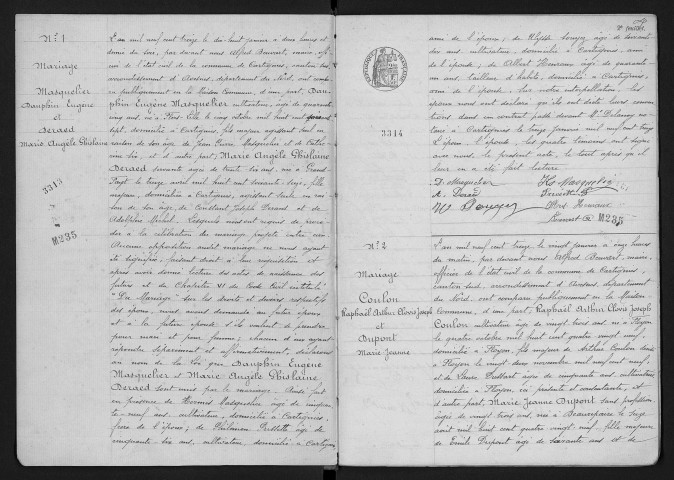 N° 1
Mariage
Masquelier
Dauphin Eugène
et
Deraed
Marie Angèle Ghislaine
3313
M235
L'an mil neuf cent treize le dix huit janvier à deux heures et
demie du soir, par devant nous Alfred Bouvart, maire, officier
de l'état civil de la commune de Cartignies, canton sud
arrondissement d'Avesnes, département du Nord, ont comparu
publiquement en la Maison Commune, d'une part, Dauphin
Eugène Masquelier cultivateur, âgé de quarante
cinq ans, né à le cinq octobre mil huit cent soixante
sept, domicilié à Cartignies, fils majeur agissant tant en
raison de son âge de Jean Pierre Masquelier et de
et d'autre part, Marie Angèle Ghislaine
Deraed servante âgée de trente six ans, née à Grand
le treize avril mil huit cent soixante seize, fille
majeure, domiciliée à Cartignies, agissant seule en raison
de son âge, de Constant Joseph Deraed et de
Adolphine Michel. Lesquels nous ont requis de procéder
à la célébration du mariage projeté entre eux.
Aucune opposition audit mariage ne nous ayant
été signifiée, faisant droit à leur réquisition et
après avoir donné lecture des actes de naissance des
futurs et du Chapitre VI du Code Civil intitulé
"Du Mariage" sur les droits et devoirs respectifs
des époux, nous avons demandé au futur époux
et à la future épouse s'ils veulent se prendre
pour mari et pour femme; chacun d'eux ayant
répondu séparément et affirmativement, déclarons
au nom de la loi que Dauphin Eugène
Masquelier et Marie Angèle Ghislaine
Deraed sont unis par le mariage. Ainsi fait
en présence de Hermis Masquelier âgé de cinquante
neuf ans, cultivateur, domicilié à Cartignies,
frère de l'époux; de Philémon âgé de
cinquante six ans, cultivateur domicilié à Cartignies
ami de l'époux; de âgé de soixante
dix ans, cultivateur, domicilié à Cartignies, ami
de l'époux; de Albert Henreaux âgé de quarante
un ans, tailleur d'habits, domicilié à Cartignies,
ami de l'épouse. Sur notre interpellation, les
époux nous ont déclaré qu'ils ont dicté leurs conventions
dans un contrat passé devant Me Delannoy notaire
à Cartignies le treize janvier mil neuf cent treize
L'époux, l'épouse, les quatre témoins ont signé
avec nous, le présent acte, le tout après qu'il
leur en a été fait lecture
3314
D. Masquelier
A. Deraed
Bouvart A
M235
N° 2
Mariage
Coulon
Raphaël Arthur Clovis Joseph
et
Dupont
Marie Jeanne
L'an mil neuf cent treize le vingt janvier à onze heures
du matin, par devant nous Alfred Bouvart, maire,
officier de l'état civil de la commune de Cartignies,
canton sud, arrondissement d'Avesnes, département
du Nord, ont comparu publiquement en la Maison
Commune, d'une part, Raphaël Arthur Clovis Joseph
Coulon cultivateur âgé de vingt trois ans né à Floyon
le quatre octobre mil huit cent quatre vingt neuf,
domicilié à Floyon, fils majeur de Arthur Coulon décédé
à Floyon le vingt deux novembre mil neuf cent neuf,
et de Laure âgée de cinquante ans, cultivatrice
domiciliée à Floyon, ici présente et consentante, et
d'autre part, Marie Jeanne Dupont sans profession
âgée de vingt trois ans, née à Beaurepaire le treize
août mil huit cent quatre vingt neuf, fille majeure
de Emile Dupont âgé de soixante ans et de